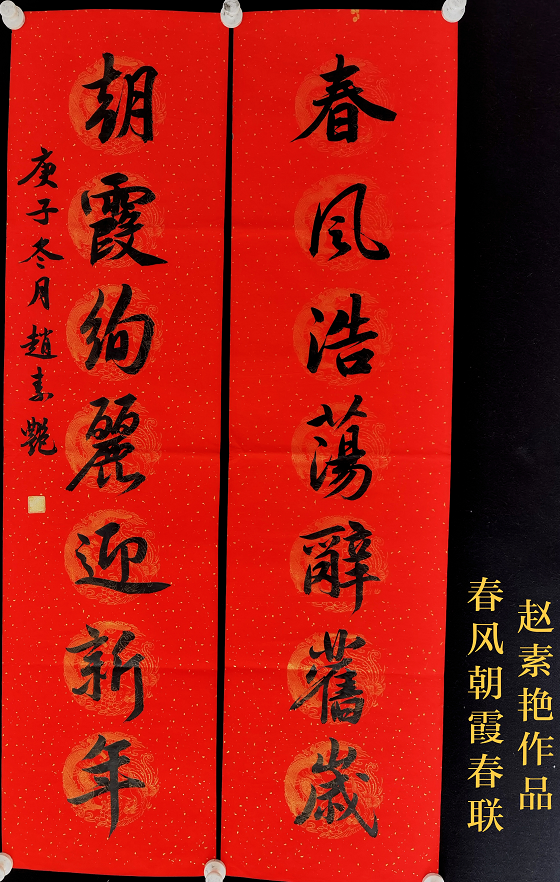 春風浩蕩辭舊歲
朝霞絢麗迎新年
庚子冬月趙素艷
赵素艳作品
春风朝霞春联